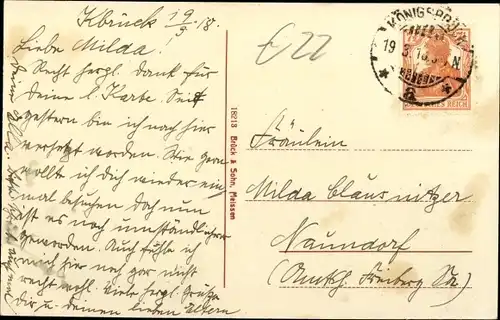 Kbrück 19/3 18.
Liebe Milda!
Recht hergl. Dank für
deine l. Karte. Seit
gestern bin ich nach hier
versetzt worden. Wie gern
wollte ich dich wieder ein
mal besuchen doch nun
ist es noch umständlicher
geworden. Auch fühle ich
mich hier noch gar nicht
recht wohl. Viele hergl. Grüße
dir u. deinen lieben Eltern
Deine Elsa.
£22
KÖNIGSBRÜCK
19 3 18
N
DEUTSCHES REICH
18213 Brück & Sohn, Meissen
Fräulein
Milda Clausnitzer
Naundorf
(Amtsh. Freiberg Sa.)